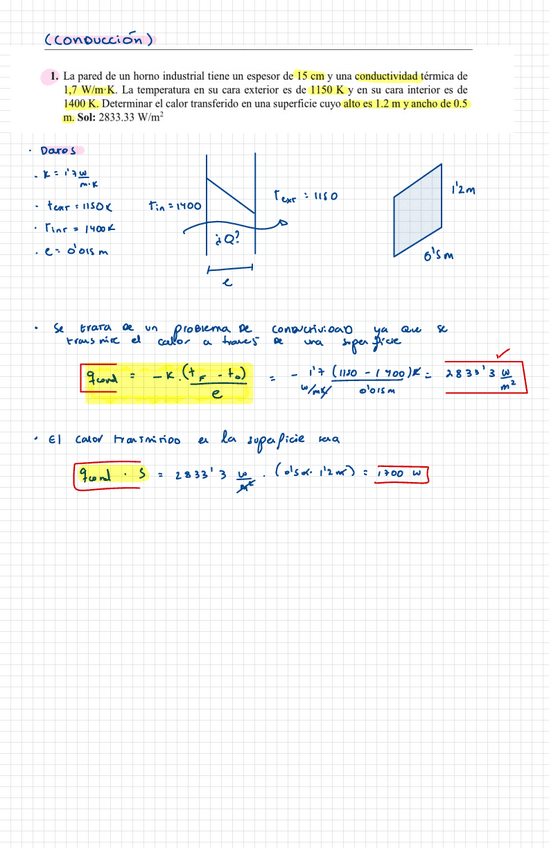 (CONDUCCIÓN)
1. La pared de un horno industrial tiene un espesor de 15 cm y una conductividad térmica de
1,7 W/m·K. La temperatura en su cara exterior es de 1150 K y en su cara interior es de
1400 K. Determinar el calor transferido en una superficie cuyo alto es 1.2 m y ancho de 0.5
m. Sol: 2833.33 W/m²
· Datos
· K = 1'7 W/m·K
· text = 1150 K
· Tint = 1400 K
· e = 0'015 m
Tin = 1400
Text = 1150
¿Q?
e
1'2 m
0'5 m
· Se trata de un problema de conductividad ya que se
transmite el calor a traves de una superficie
qcond = -K · (tF - t0)/e = - 1'7 W/mK (1150 - 1400)K/0'015 m = 2833'3 W/m²
· El calor transmitido en la superficie sera
qcond · S = 2833'3 W/m² · (0'5m · 1'2m) = 1700 W